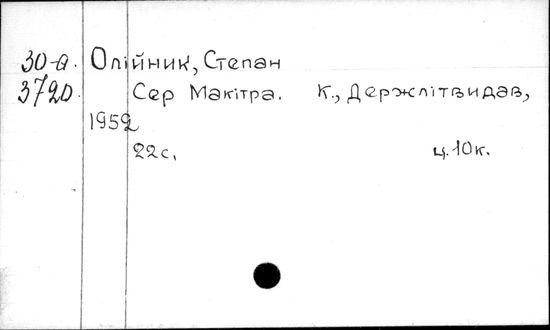 30-а. Олійник, Степан
3720. Сер Макітра. К., Держлітвидав,
1952
22с. ц.10к.